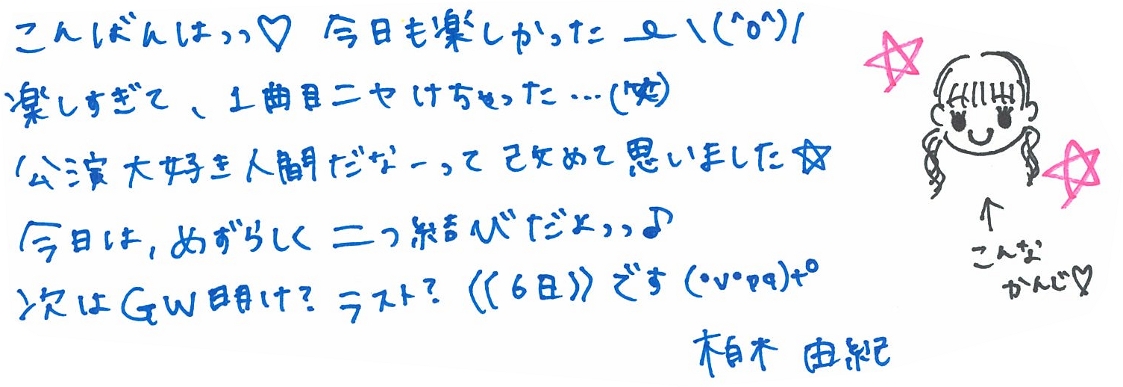 こんばんはっっ♡ 今日も楽しかったーe\(^o^)/
楽しすぎて、1曲目ニヤけちゃった…(笑)
公演大好き人間だなーって改めて思いました☆
今日は,めずらしく二つ結びだよっっ♪
次はGW明け?ラスト?((6日))です(•v•pq)+°
柏木 由紀
↑
こんな
かんじ♡